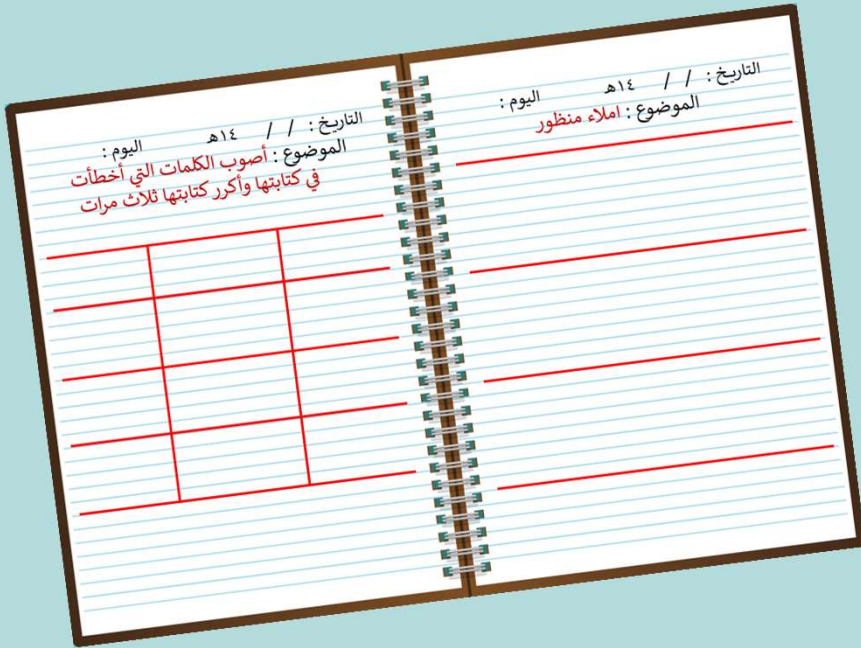 التاريخ : / / ١٤هـ اليوم :
الموضوع : املاء منظور
التاريخ : / / ١٤هـ اليوم :
الموضوع : أصوب الكلمات التي أخطأت
في كتابتها وأكرر كتابتها ثلاث مرات